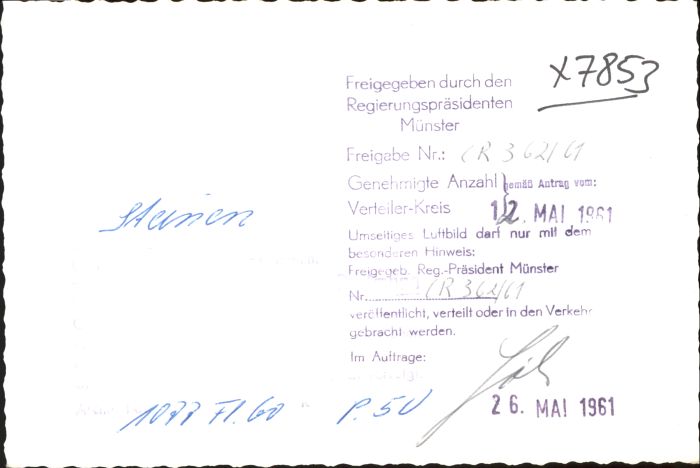 X7853
Freigegeben durch den
Regierungspräsidenten
Münster
Freigabe Nr.: CR 362/61
Genehmigte Anzahl } gemäß Antrag vom:
Verteiler-Kreis 12. MAI 1961
Umseitiges Luftbild darf nur mit dem
besonderen Hinweis:
Freigegeb. Reg.-Präsident Münster
Nr. CR 362/61
veröffentlicht, verteilt oder in den Verkehr
gebracht werden.
Im Auftrage:
26. MAI 1961
1077 Fl. 60 P. 50